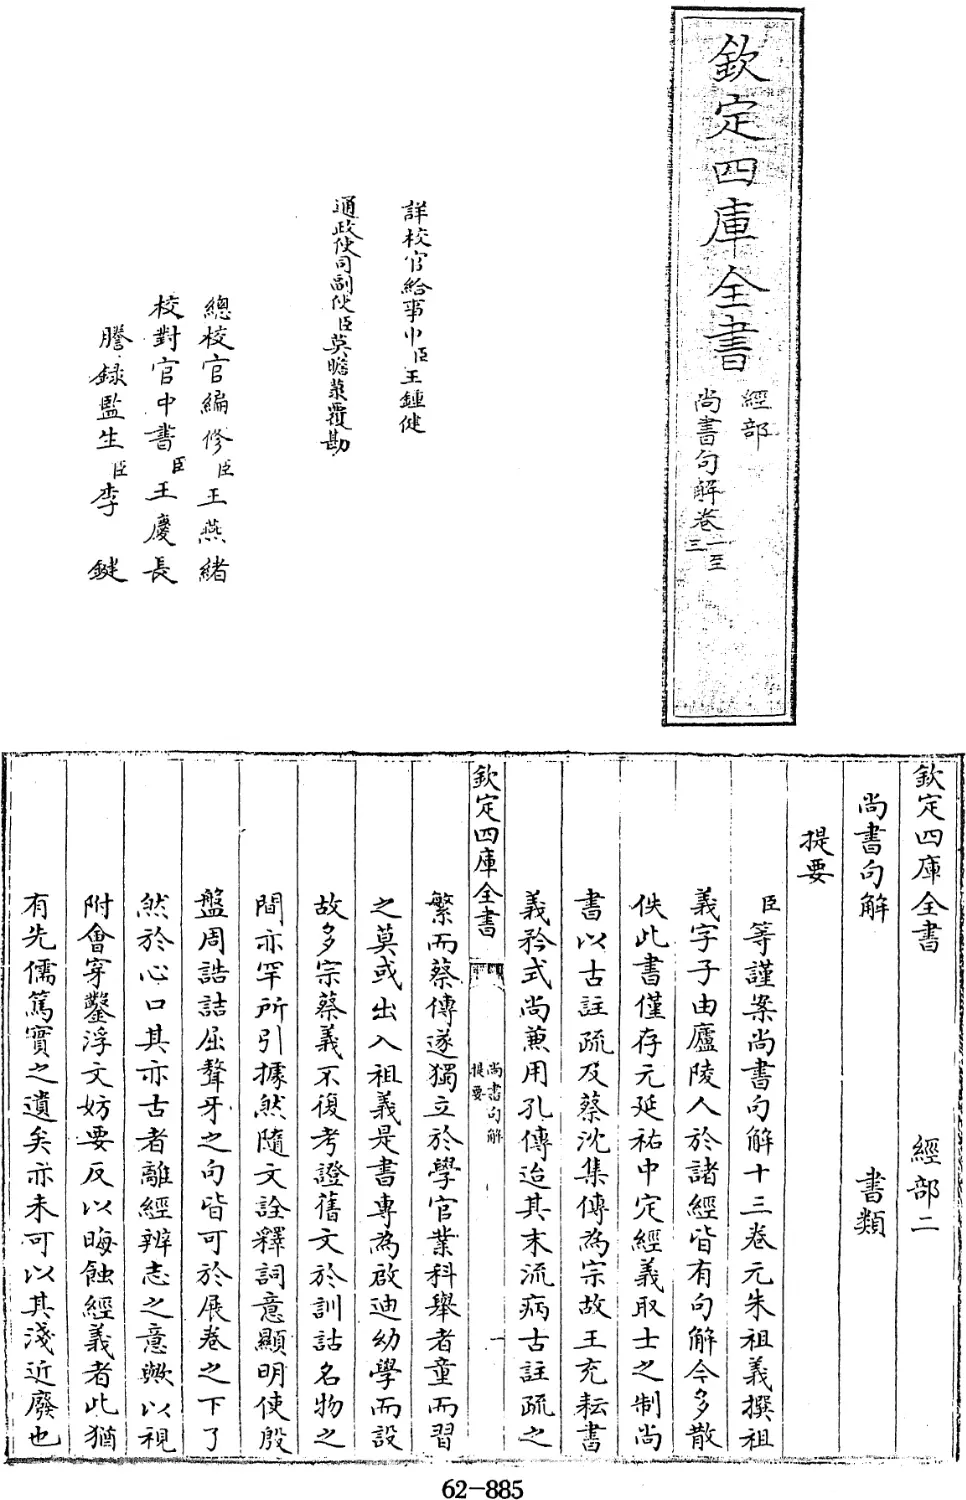 欽定四庫全書
經部
尚書句解卷一至三
詳校官給事中臣王鍾健
通政使司副使臣莫瞻菉覆勘
總校官編修臣王燕緒
校對官中書臣王慶長
謄錄監生臣李鍵
欽定四庫全書 經部二
尚書句解 書類
提要
臣等謹案尚書句解十三卷元朱祖義撰祖
義字子由廬陵人於諸經皆有句解今多散
佚此書僅存元延祐中定經義取士之制尚
書以古註疏及蔡沈集傳為宗故王充耘書
義矜式尚兼用孔傳迨其末流病古註疏之
欽定四庫全書
尚書句解
提要
一
繁而蔡傳遂獨立於學官業科舉者童而習
之莫或出入祖義是書專為啟迪幼學而設
故多宗蔡義不復考證舊文於訓詁名物之
間亦罕所引據然隨文詮釋詞意顯明使殷
盤周誥詰屈聱牙之句皆可於展卷之下了
然於心口其亦古者離經辨志之意歟以視
附會穿鑿浮文妨要反以晦蝕經義者此猶
有先儒篤實之遺矣亦未可以其淺近廢也
62-885